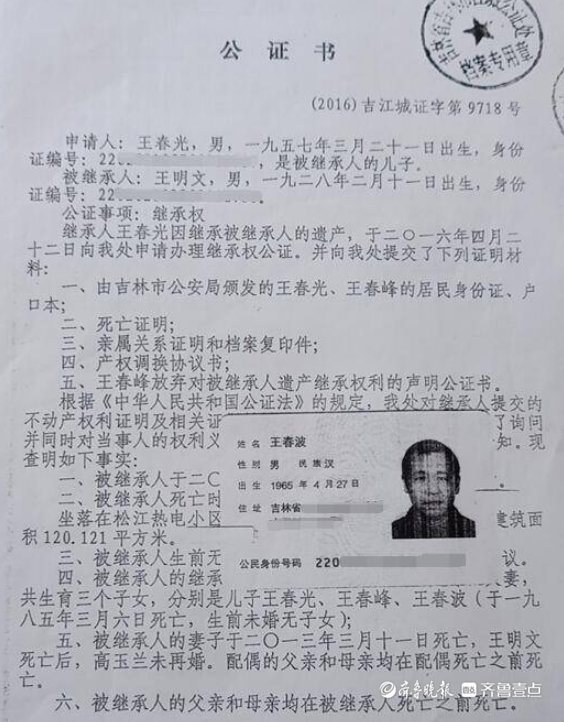 公证书
吉林省吉林市江城公证处
档案专用章
(2016)吉江城证字第9718号
申请人：王春光，男，一九五七年三月二十一日出生，身份
证编号：220 ，是被继承人的儿子。
被继承人：王明文，男，一九二八年二月十一日出生，身份
证编号：220 。
公证事项：继承权
继承人王春光因继承被继承人的遗产，于二〇一六年四月二
十二日向我处申请办理继承权公证。并向我处提交了下列证明材
料：
一、由吉林市公安局颁发的王春光、王春峰的居民身份证、户
口本；
二、死亡证明；
三、亲属关系证明和档案复印件；
四、产权调换协议书；
五、王春峰放弃对被继承人遗产继承权利的声明公证书。
根据《中华人民共和国公证法》的规定，我处对继承人提交的
不动产权利证明及相关证 了询问
并同时对当事人的权利义 知。现
查明如下事实：
一、被继承人于二〇 。
二、被继承人死亡时
坐落在松江热电小区 建筑面
积120.121平方米。
三、被继承人生前无 议。
四、被继承人的继承 妻，
共生育三个子女，分别是儿子王春光、王春峰、王春波（于一九
八五年三月六日死亡，生前未婚无子女）；
五、被继承人的妻子于二〇一三年三月十一日死亡，王明文
死亡后，高玉兰未再婚。配偶的父亲和母亲均在配偶死亡之前死
亡。
六、被继承人的父亲和母亲均在被继承人死亡之前死亡。
姓名 王春波
性别 男 民族汉
出生 1965 年 4 月 27 日
住址 吉林省
公民身份号码 220
齐鲁晚报 齐鲁壹点